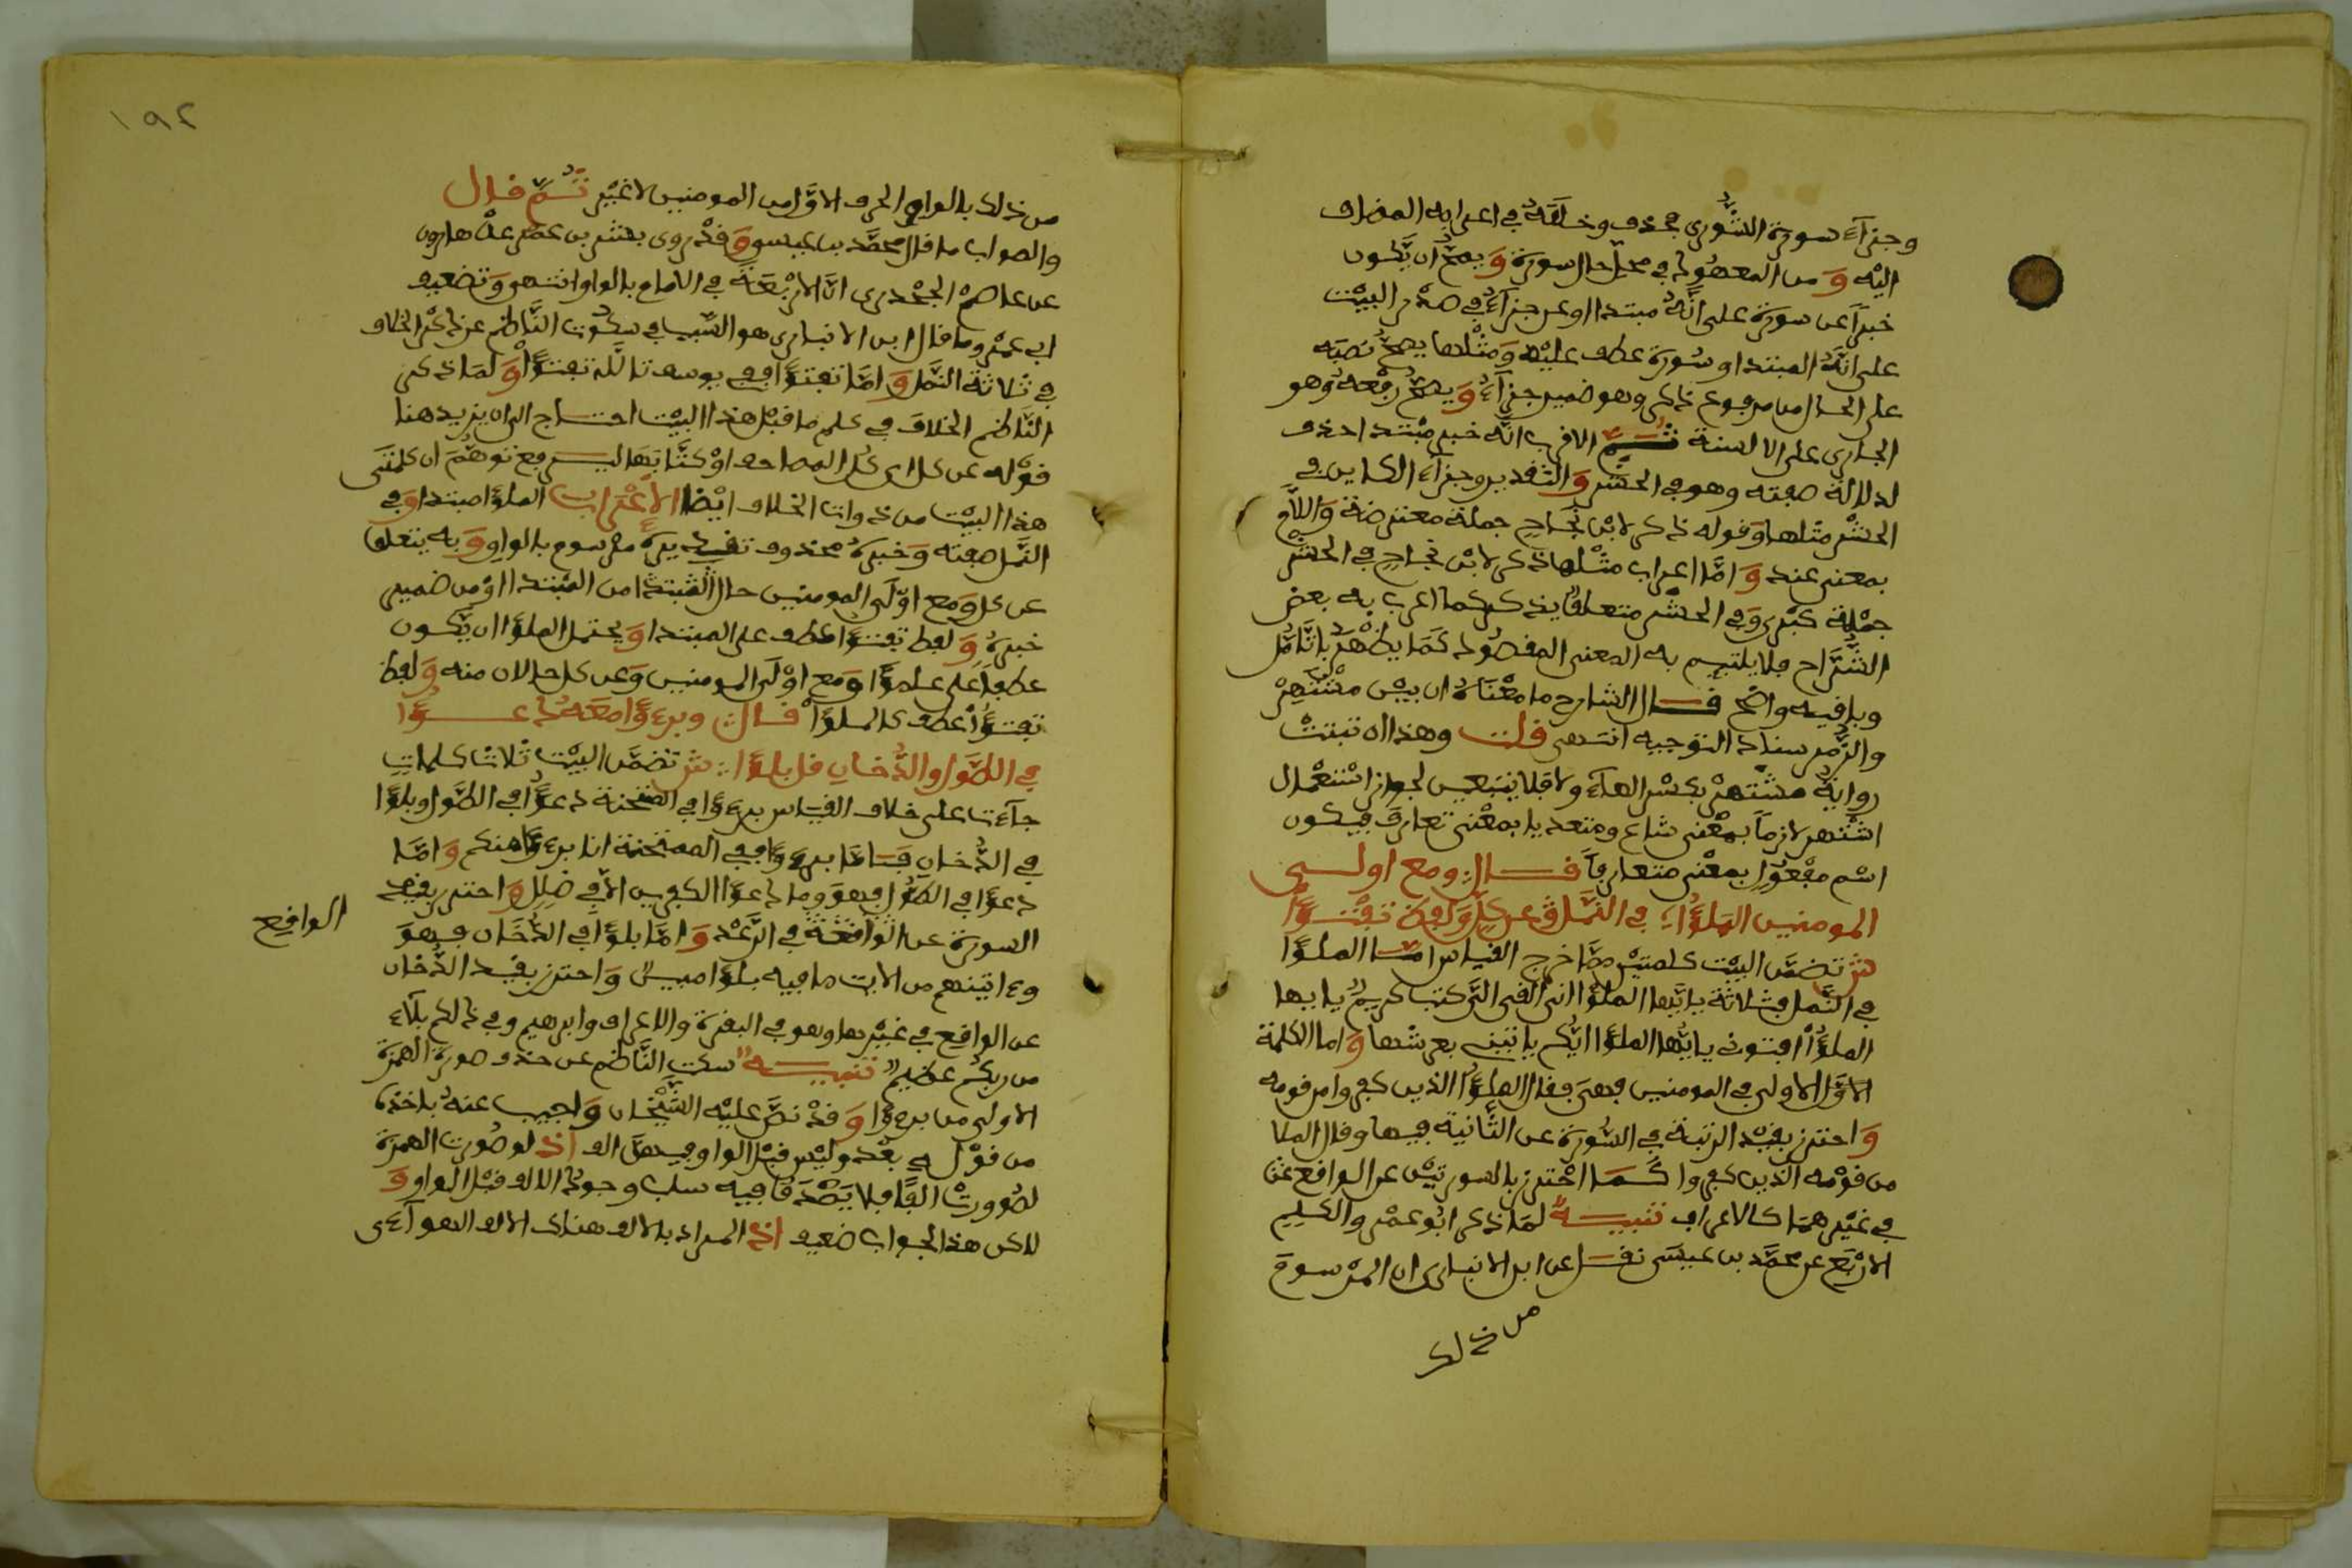 وجزآء سورة الشورى فحذف وخلفه في اعرابه المضاف
اليه وَمن المعهود في محل حال سورة وَيصح أن يكون
خبرًا عن سورة على أنه مبتدا او عن جزآء في صدر البيت
على أنه المبتدا وسورة عطف عليه وَمثلها يصح نصبه
على الحال من مرفوع ذكر وهو ضمير جزآء وَيصح رفعه وهو
الجاري على الالسنة ثم الاقرب انه خبر مبتدا حذف
لدلالة صفته وهو في الحشر وَالتقدير وجزآء الكاين في
الحشر مثلها وَقوله ذكر لابن نجاح جملة معترضة وَاللام
بمعنى عند وَاما اعراب مثلها ذكر لابن نجاح في الحشر
جملة كبرى وَفي الحشر متعلقا يذكر كما اعرب به بعض
الشراح فلا يلتيم به المعنى المقصود كما يظهر بالتامل
وباقيه واضح قال الشارح ما معناه ان بين مشتهر
والزمر سناد التوجيه انتهى قلت وهذا ان ثبتت
رواية مشتهر بكسر الهآء ولا فلا يتعين لجواز استعمال
اشتهر لازما بمعنى شاع ومتعديا بمعنى تعارف فيكون
اسم مفعول بمعنى متعارفا قال ومع اولى
المومنين الملؤا في النمل عن كل ولفظ تفتؤا
ش تضمن البيت كلمتين مما خرج القياس اما الملؤا
في النمل فثلاثة يايها الملؤا اني القي الي كتب كريم يايها
الملؤا افتوني يايها الملؤا ايكم ياتيني بعرشها وَاما الكلمة
الاولى في المومنين فهي فقال الملؤا الذين كفروا من قومه
وَاحترز بقيد الرتبة في السورة عن الثانية فيها وقال الملا
من قومه الذين كفروا كما احترز بالسورتين عن الواقع
في غيرهما كالاعراف تنبيه لما ذكر ابو عمرو الكلم
الاربع عن محمد بن عيسى نقل عن ابن الانباري ان المرسوم
من ذلك
١٩٢
من ذلك بالواو الحرف الاول من المومنين لا غير ثم قال
والصواب ما قال محمد بن عيسى وَقد روى بشر بن عمر عن هارون
عن عاصم الجحدري ان الاربعة في الامام بالواو انتهى وَتضعيف
ابي عمرو ما قال ابن الانباري هو السبب في سكوت الناظم عن ذكر الخلاف
في ثلاثة النمل وَاما تفتؤا ففي يوسف تالله تفتؤا وَلما ذكر
الناظم الخلاف في كلم ما قبل هذا البيت احتاج الى ان يزيد هنا
قوله عن كل اي كل المصاحف او كتابها ليرفع توهم ان كلمتى
هذا البيت من ذوات الخلاف ايضا الاعراب الملؤا مبتدا وَفي
النمل صفته وَخبره محذوف تقديره مرسوم بالواو وَبه يتعلق
عن كل وَمع اولى المومنين حال من المبتدا او من ضمير
خبره وَلفظ تفتؤا عطف على المبتدا وَيحتمل الملؤا ان يكون
عطفا على علمؤا وَمع اولى المومنين وَعن كل حالان منه وَلفظ
تفتؤا عطف كالملؤا قال وبرءؤا معه دعؤا
في الطول والدخان قل بلؤا ش تضمن البيت ثلاث كلمات
جآءت على خلاف القياس برءؤا في الممتحنة دعؤا في الطول وبلؤا
في الدخان فاما برءؤا ففي الممتحنة انا برءؤا منكم وَاما
دعؤا في الطول فهو وما دعؤا الكفرين الا في ضلل وَاحترز بقيد
السورة عن الواقعة في الرعد وَاما بلؤا في الدخان فهو
الواقع
وءاتينهم من الايت ما فيه بلؤا مبين وَاحترز بقيد الدخان
عن الواقع في غيرها وهو في البقرة والاعراف وابرهيم وفي ذلكم بلآء
من ربكم عظيم تنبيه سكت الناظم عن حذف صورة الهمزة
الاولى من برءؤا وَقد نص عليه الشيخان وَاجيب عنه باخذه
من قوله بعد وليس قبل الواو فيهن الف اذ لو صورت الهمزة
لصورت الفا فلا يصدق فيه سلب وجود الالف قبل الواو وَ
لاكن هذا الجواب ضعيف اذ المراد بالالف هناك الالف الهوآءى